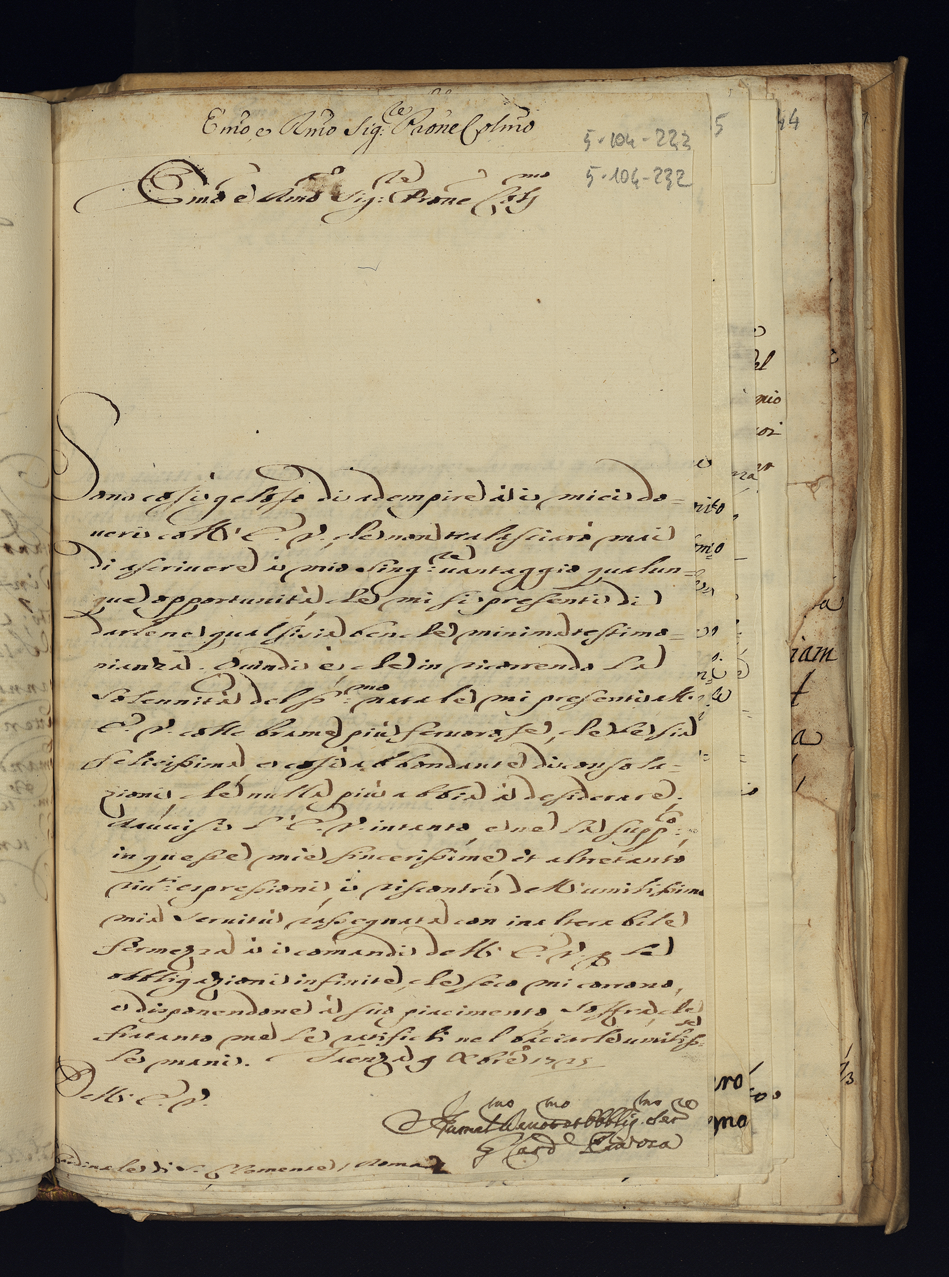 Emo e Rmo Sig.re Prone Colmo
5-104-223
5-104-232
5
44
Emo e Rmo Sig:re Prone
Sono così geloso di adempire à i miei do=
ueri coll' E. V., che non tralascierò mai
di ascriuere à mio sing.re uantaggio qualun=
que opportunità, che mi si presenti di
darlene qual si sia ben che minima testimo=
nianza. Quindi è, che in ricorrendo la
Solennità del SS.mo natale mi presento all'
E. V. colle brame più feruorose, che le sia
felicissima e così abbondante di consola=
zioni che nulla più abbia à desiderare.
l'E. V. intanto, e ne la supp.co
in queste mie sincerissime et altretanto
riu.ti espressioni i riscontri dell'umilissima
mia Seruitù rassegnata con inalterabile
fermezza à i comandi dell' E. V. p le
obbligazioni infinite, che seco mi corrono,
e disponendone à suo piacimento soffra, che
fratanto me le ratifichi nel baciarle umiliss.te
le mani. Faenza 9 Xbre 1725
Dell' E. V.
Humil.mo Deuot.mo Obblig.mo Ser.re
G Card.
di S. Clemente / Roma
iam